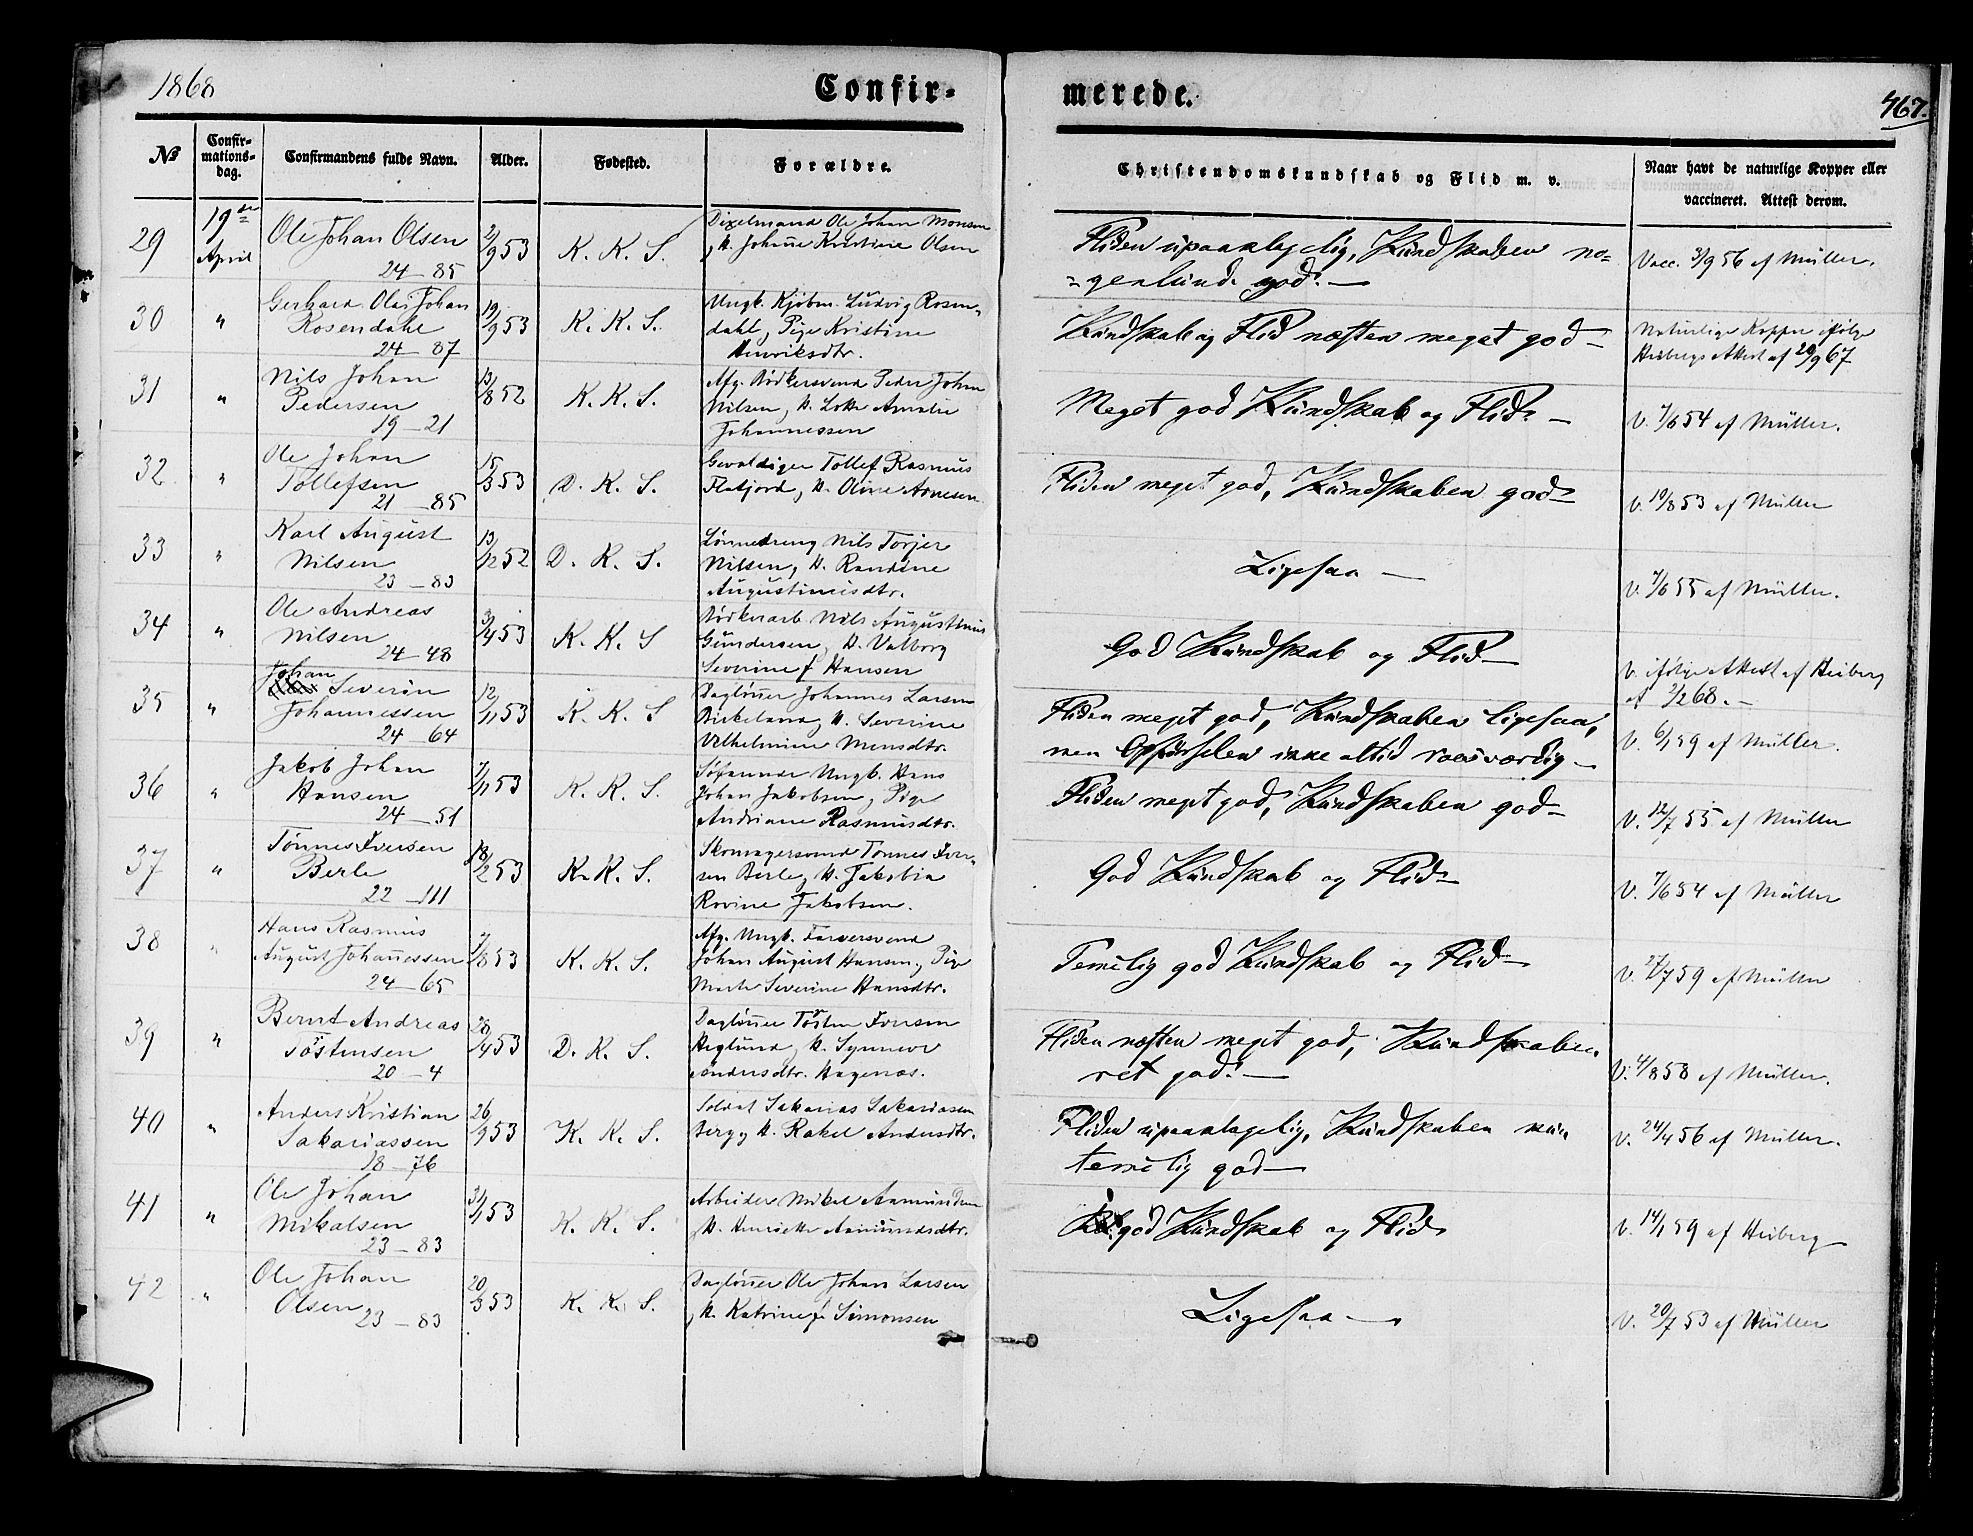 1868
Confir-
merede.
467.
№
Confir-
mations-
dag.
Confirmandens fulde Navn.
Alder.
Fødested.
Forældre.
Christendomskundskab og Flid m. v.
Naar havt de naturlige Kopper eller
vaccineret. Attest derom.
29
19de
April
Ole Johan Olsen
24 - 85
2/9 53
K. K. S.
Ole Johan Monsen
, H. Johanne Kristine Olsen
Fliden upaaklagelig, Kundskaben no=
=genlunde god. —
Vacc. 3/9 56 af Müller.
30
"
Gerhard Olai Johan
Rosendahl
24 - 87
19/9 53
K. K. S.
Ungk. Kjøbm. Ludvig Rosen-
dahl, Pige Kristine
Henriksdtr.
Kundskab og Flid næsten meget god —
Naturlige Kopper ifølge
Heibergs Attest af 20/9 67
31
"
Nils Johan
Pedersen
19 - 21
13/8 52
K. K. S.
Afg. Bødkersvend Peder Johan
Nilsen, H. Lotte Amalie
Johannessen
Meget god Kundskab og Flid —
V. 7/6 54 af Müller.
32
"
Ole Johan
Tollefsen
21 - 85
15/3 53
D. K. S.
Gevaldiger Tollef Rasmus
Flatjord, H. Oline Arnesen
Fliden meget god, Kundskaben god
V. 10/8 53 af Müller
33
"
Karl August
Nilsen
23 - 83
13/12 52
D. K. S.
Lønnedreng Nils Torjer
Nilsen, H. Randine
Augustinusdtr.
Ligesaa —
V. 7/6 55 af Müller.
34
"
Ole Andreas
Nilsen
24 - 48
3/4 53
K. K. S
Bødkerarb Nils Augustinus
Gundersen, H. Valborg
Severine f Hansen
God Kundskab og Flid —
V. ifølge Attest af Heiberg
af 2/2 68. —
35
"
Johan
Severin
Johannessen
24 - 64
12/11 53
K. K. S
Dagløner Johannes Larsen
Birkeland, H. Severine
Vilhelmine Monsdtr.
Fliden meget god, Kundskaben ligesaa,
men Opførselen ikke altid rosværdig —
V. 6/1 59 af Müller.
36
"
Jakob Johan
Hansen
24 - 51
7/11 53
K. K. S.
Søfarende Ungk. Hans
Johan Jakobsen, Pige
Andriane Rasmusdtr.
Fliden meget god, Kundskaben god —
V. 12/7 55 af Müller
37
"
Tønnes Iversen
Berle
22 - 111
18/2 53
K. K. S.
Skomagersvend Tønnes Iver-
sen Berle, H. Jakobia
Rovine Jakobsen.
God Kundskab og Flid
V. 7/6 54 af Müller
38
"
Hans Rasmus
August Johanessen
24 - 65
7/8 53
K. K. S.
Afg. Ungk. Farversvend
Johan August Hansen, Pige
Marte Severine Hansdtr.
Temelig god Kundskab og Flid —
V. 27/7 59 af Müller
39
"
Bernt Andreas
Tostensen
20 - 4
28/4 53
D. K. S.
Dagløner Tosten Iversen
Heglund, H. Synneve
Andersdtr. Hagenæs.
Fliden næsten meget god, Kundskaben
ret god! —
V. 4/8 58 af Müller.
40
"
Anders Kristian
Sakariassen
18 - 76
26/9 53
K. K. S.
Soldat Sakarias Sakariassen
Berg, H. Rakel Andersdtr.
Fliden upaaklagelig, Kundskaben kun
temelig god —
V. 24/4 56 af Müller.
41
"
Ole Johan
Mikalsen
23 - 83
3/1 53
K. K. S.
Arbeider Mikal Aamundsen
, H. Henriette Aamundsdtr.
god Kundskab og Flid
V. 14/1 59 af Heiberg
42
"
Ole Johan
Olsen
23 - 83
20/3 53
K. K. S.
Dagløner Ole Johan Larsen
, H. Katrine f. Simonsen
Ligesaa —
V. 20/7 53 af Müller